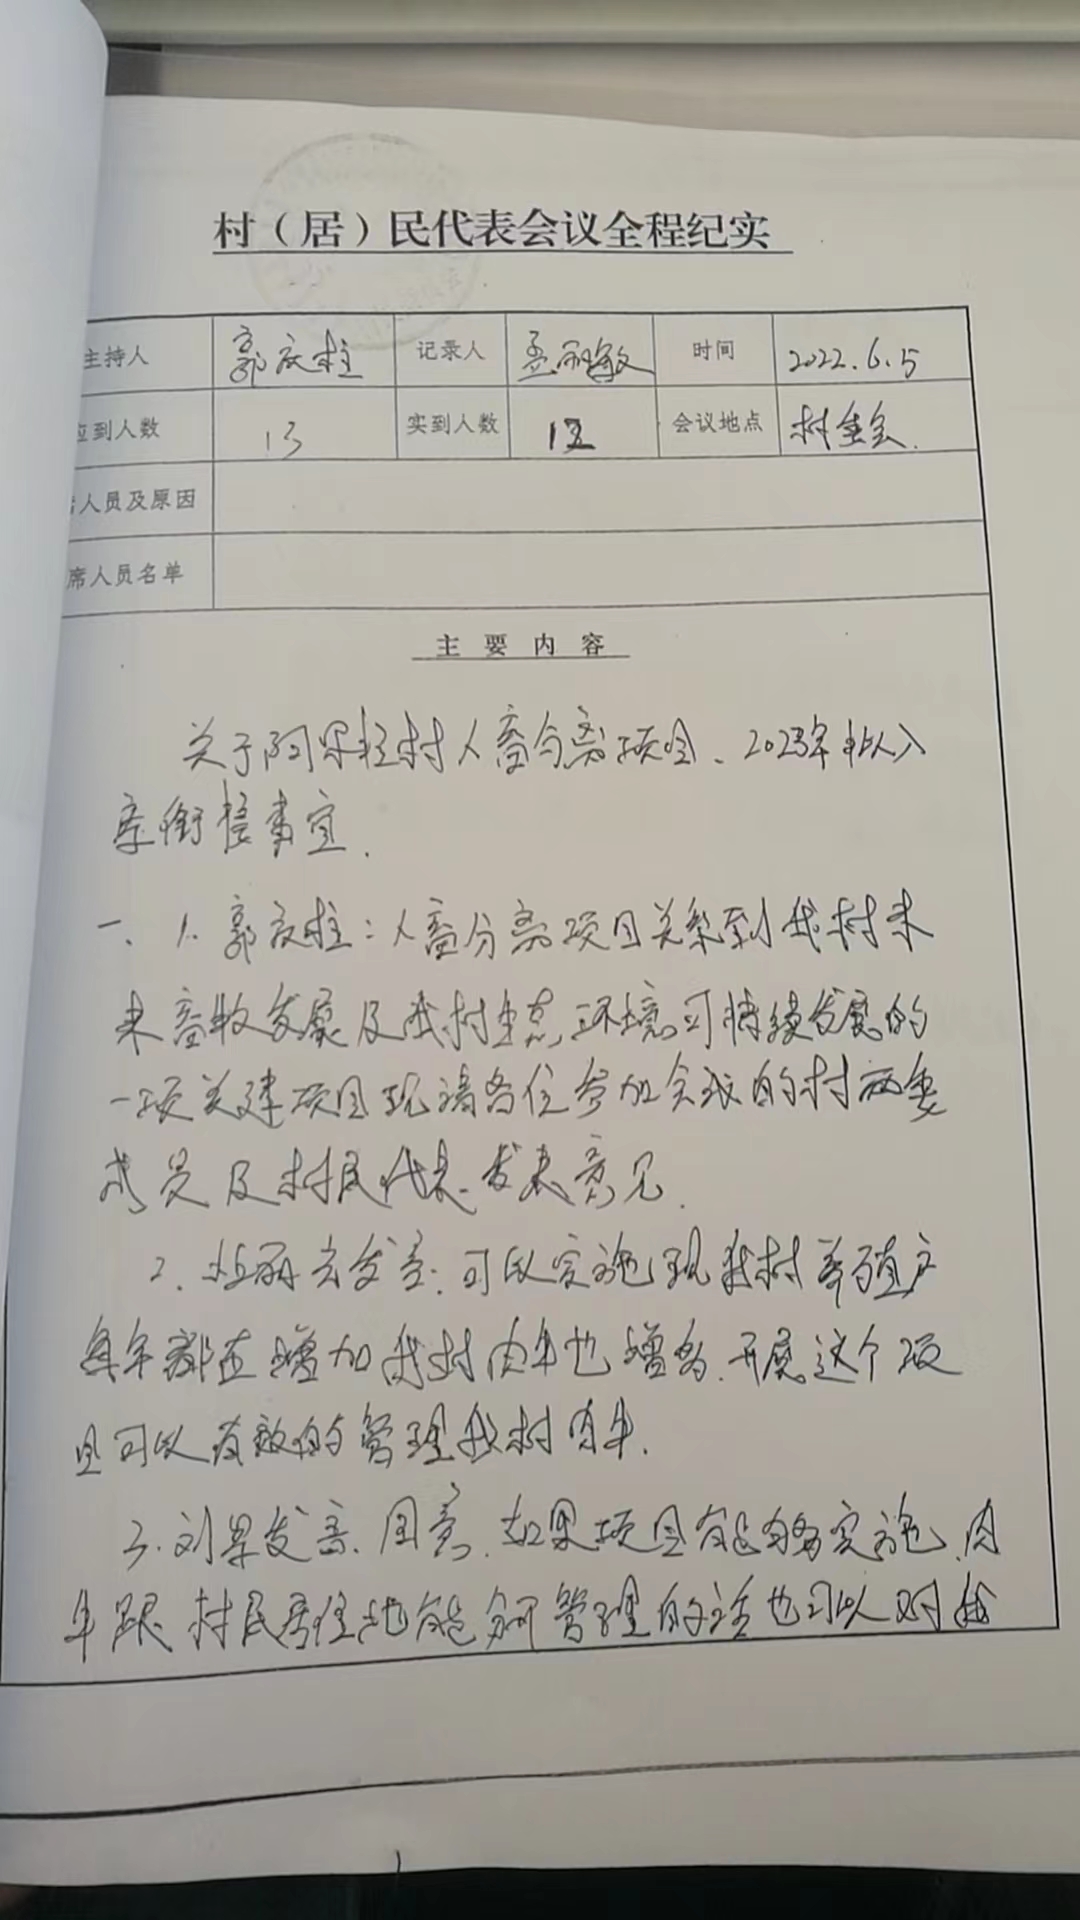 村（居）民代表会议全程纪实
主持人 郭庆柱 记录人 孟丽敏 时间 2022.6.5
应到人数 13 实到人数 12 会议地点 村委会.
人员及原因
席人员名单
主要内容
关于阿果拉村人畜分离项目、2023年批入
库衔接事宜.
一、1.郭庆柱:人畜分离项目关系到我村未
来畜牧发展及我村生态环境可持续发展的
一项关建项目现请各位参加会议的村两委
成员及村民代表发表意见.
2、丽云发言:可以实施现我村养殖户
每年都在增加我村肉牛也增多.开展这个项
目可以有效的管理我村肉牛.
3.刘果发言、同意.如果项目能够实施,肉
牛跟村民居住地能分开管理的话也可以对我